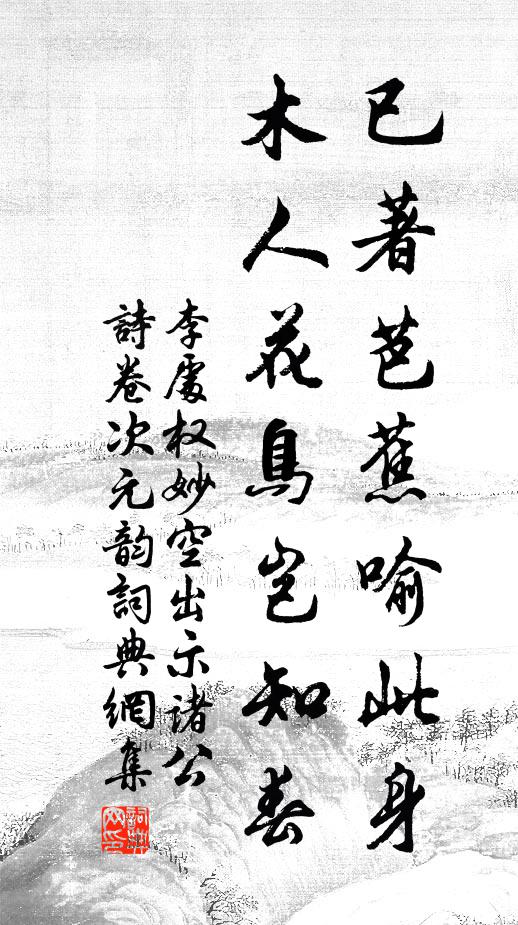 已著芭蕉喻此身
木人花鳥岂知春
李處权妙空出示諸公
詩卷次元韵詞典網集